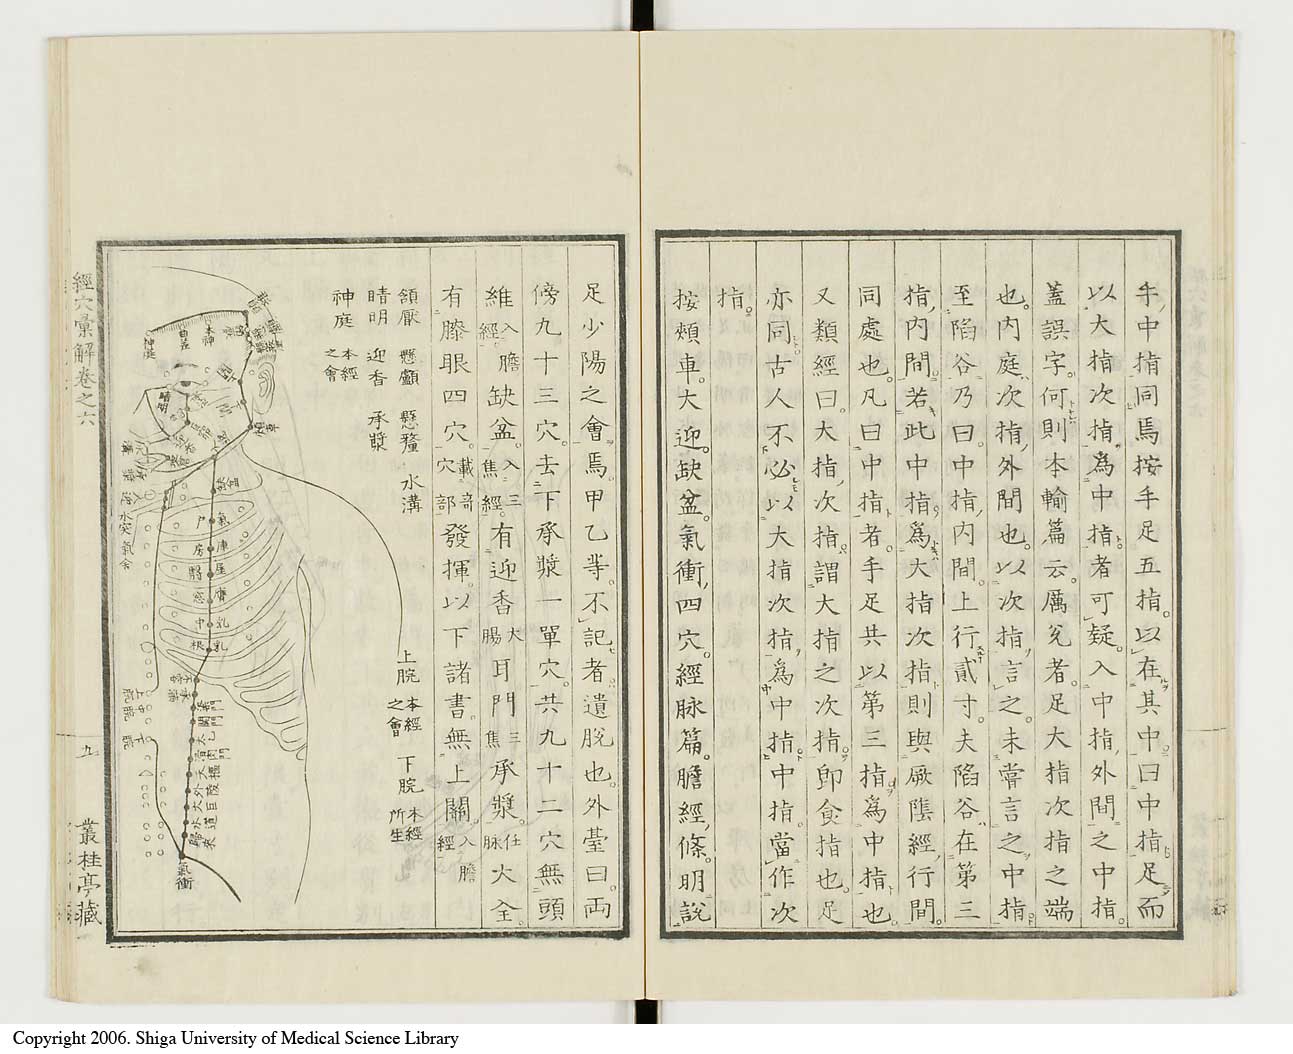 手中指同焉按手足五指以在其中曰中指足而
以大指次指爲中指者可疑入中指外間之中指
蓋誤字何則本輸篇云厲兌者足大指次指之端
也内庭次指外間也以次指言之未嘗言之中指
至陷谷乃曰中指内間上行貳寸夫陷谷在第三
指内間若此中指爲大指次指則與厥陰經行間
同處也凡曰中指者手足共以第三指爲中指也
又類經曰大指次指謂大指之次指卽食指也足
亦同古人不必以大指次指爲中指中指當作次
指
按頰車大迎缺盆氣衝四穴經脉篇膽經條明說
足少陽之會焉甲乙等不記者遺脫也外臺曰兩
傍九十三穴去下承漿一單穴共九十二穴無頭
維入膽經缺盆入三焦經有迎香大腸耳門三焦承漿任脉大全
有膝眼四穴載奇穴部發揮以下諸書無上關入膽經
頷厭 懸顱 懸釐 水溝
睛明 迎香 承漿
神庭本經之會
上脘本經之會 下脘本經所生
神庭
曲差
本神
頭維
大迎
人迎
水突 氣舍
缺盆
氣戶
庫房
屋翳
膺窓
乳中
乳根
不容
承滿
梁門
關門
太乙
滑肉門
天樞
外陵
大巨
水道
歸來
氣衝
上脘
中脘
下脘
經穴彙解卷之六
九
叢桂亭藏
Copyright 2006. Shiga University of Medical Science Library